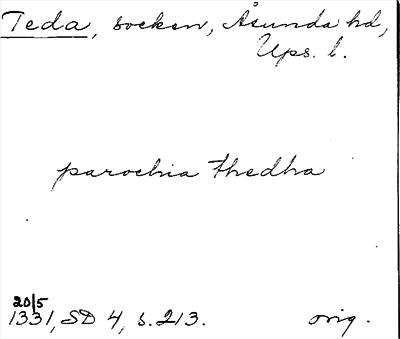 Teda, socken, Åsunda hd,
Ups. l.
parochia thedha
20/5
1331, SD 4, s. 213. orig.